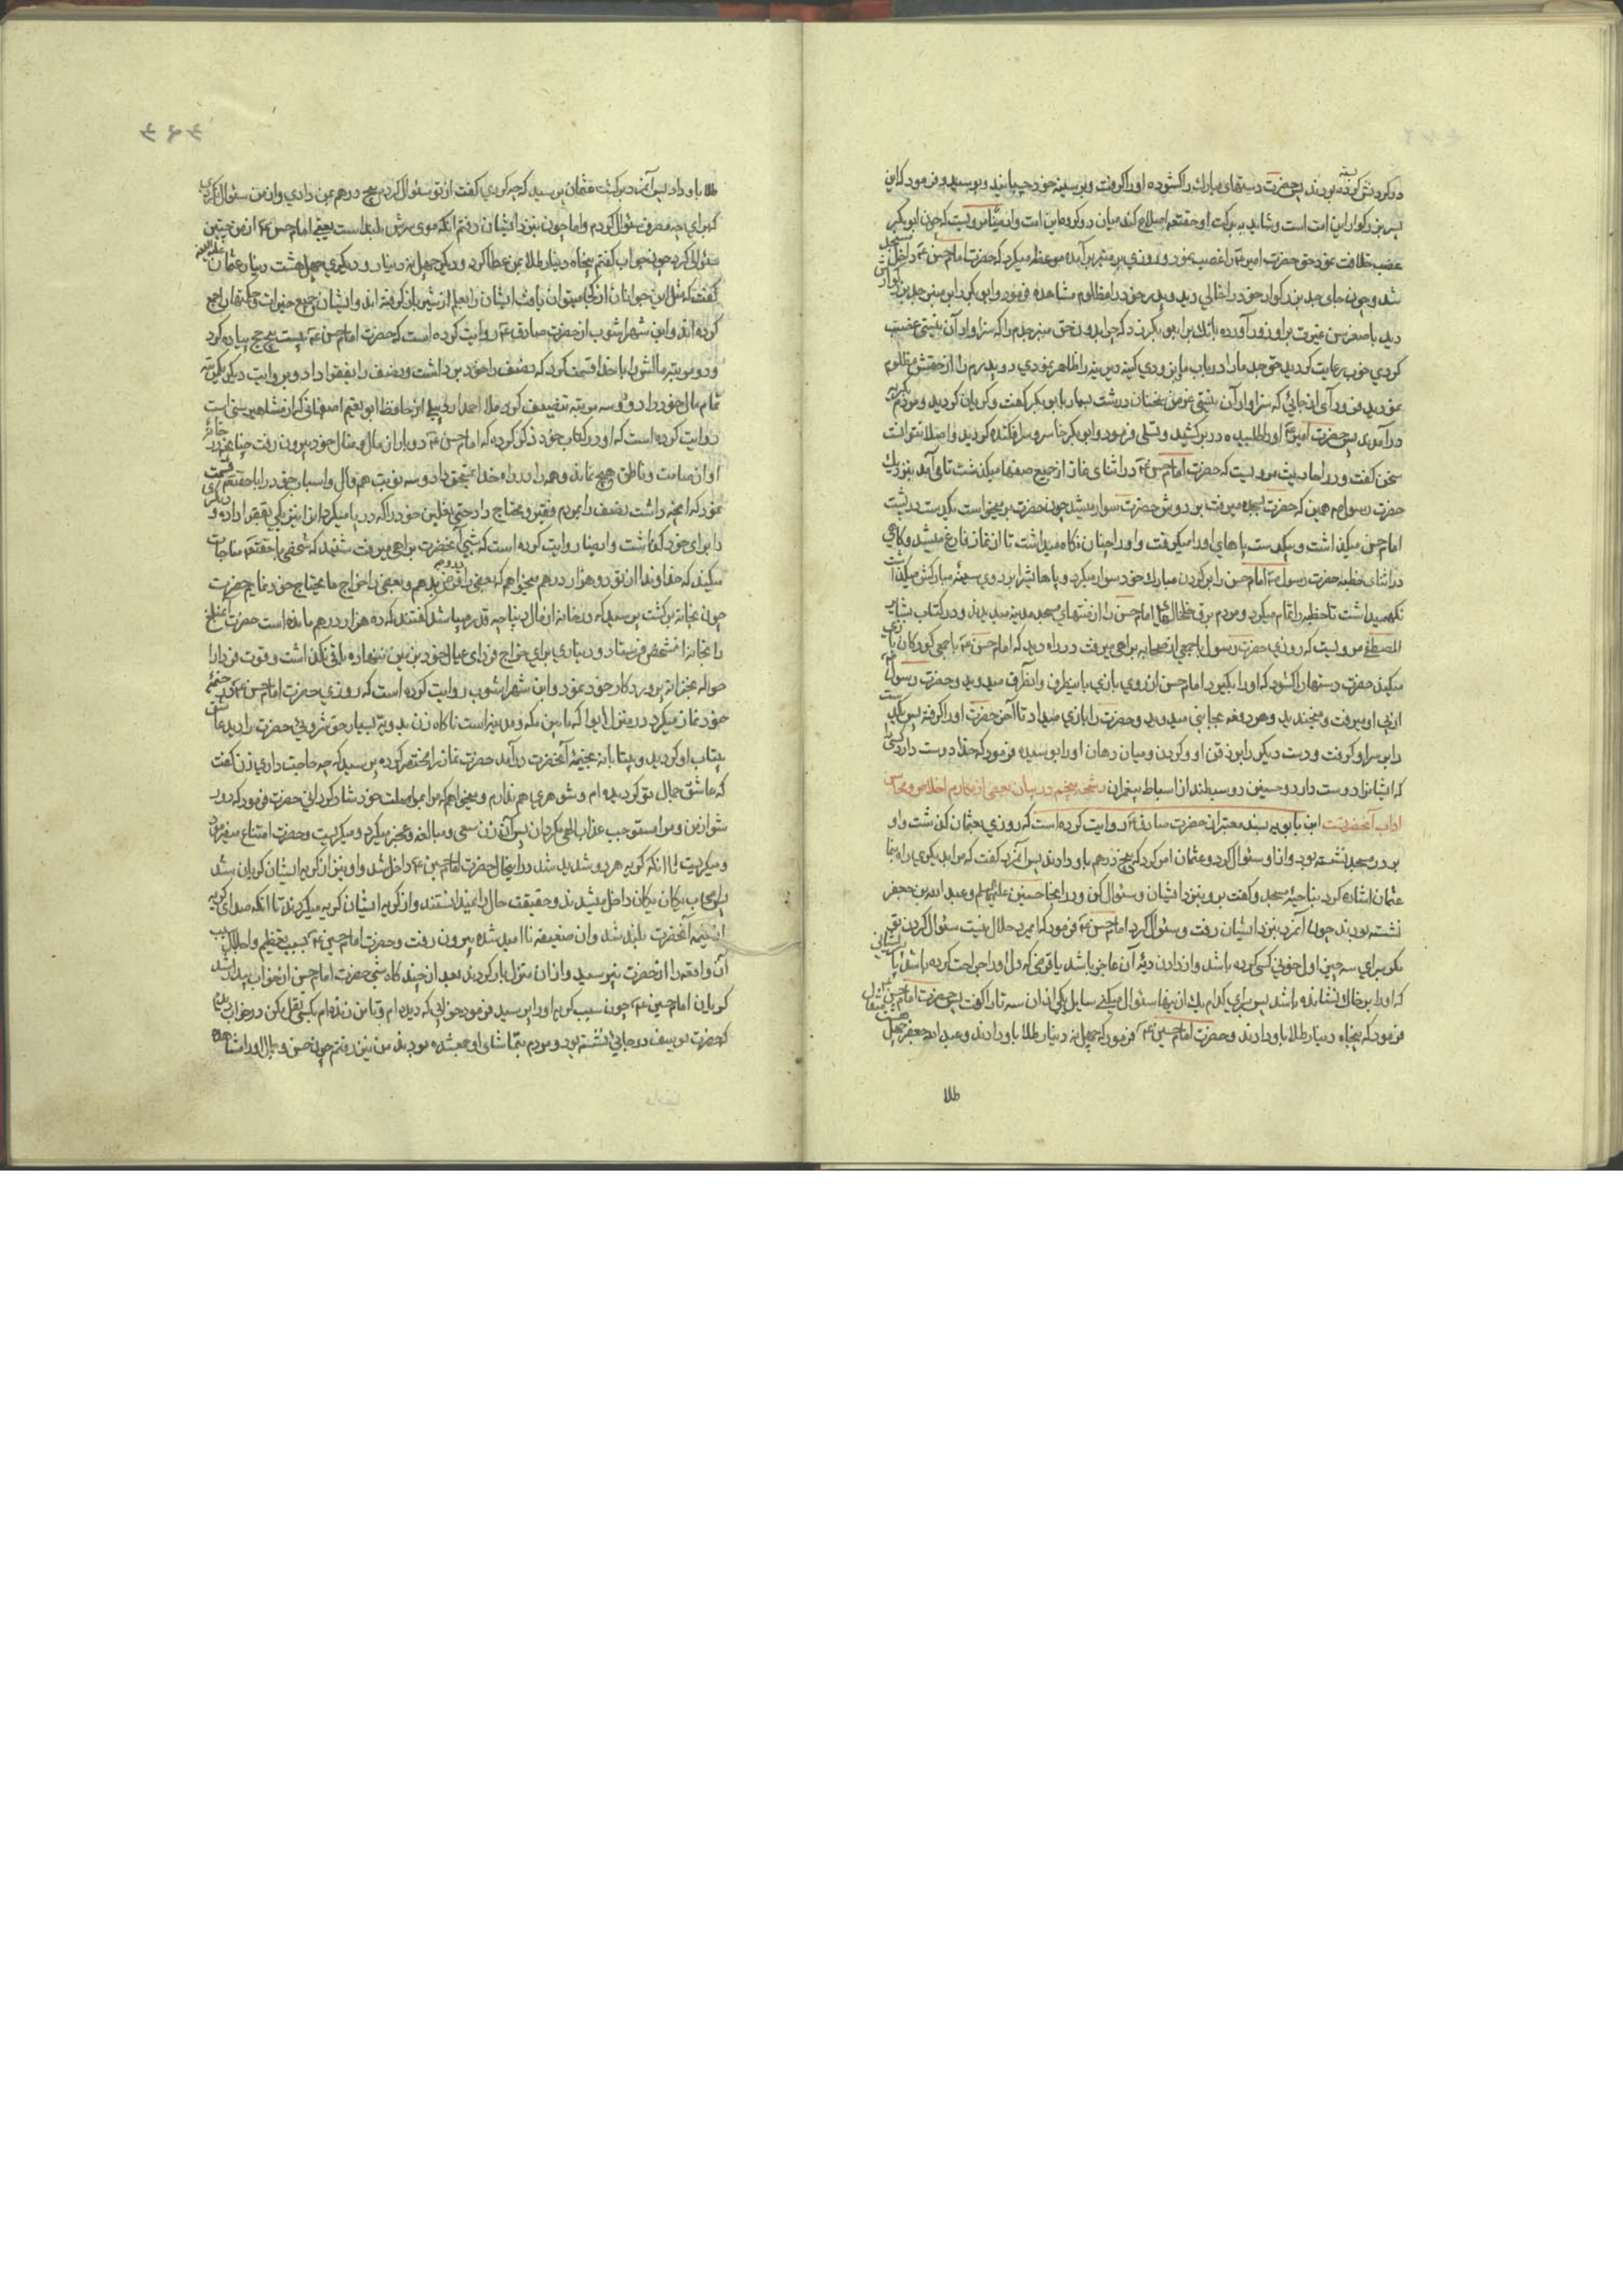 در کردنش کرده بودند پس حضرت دستهای مبارک را کشوده او را گرفت و بر سینه خود چسبانید و بوسید و فرمود که این
پسر بزرگوار این امت است و شاید به برکت او حقتعالی اصلاح کند میان دو گروه این امت و ایضا مرویست که چون ابوبکر
غصب خلافت نمود حق حضرت امیر را غصب نمود و روزی بر منبر برآمده موعظه میکرد که حضرت امام حسن داخل مسجد
شد و چون جای جد بزرگوار خود را خالی دید و پدر خود را مظلوم مشاهده فرمود و ابوبکر را بر منبر جد بزرگوارش
دید با صغر سن غیرت بر او زور آورده بانک بر ابوبکر زد که چرا بدون حق منبر جدم را که سزاوار آن نیستی غصب
کردی خوب رعایت کردید حق جد ما را در باب ما بزودی کینه دیرینه را ظاهر نمودی و پدرم را از حقش مظلوم
نمودید فرود آی از جائی که سزاوار آن نیستی و سخنان درشت بسیار با ابوبکر گفت و گریان گردید و مردم بگریه
درآمدند پس حضرت امیر او را طلبیده در بر کشید و تسلی فرمود و ابوبکر خاسر و سرافکنده گردید و اصلا نتوانست
سخن گفت و در احادیث مرویست که حضرت امام حسن در اثنای نماز از جمیع صفها میگذشت تا می آمد بنزدیک
حضرت رسول همین که حضرت بسجده میرفت بر دوش حضرت سوار میشد چون حضرت بر میخواست یکدست در پشت
امام حسن میگذاشت و بیکدست پاهای او را میگرفت و او را چنان نگاه میداشت تا از نماز فارغ میشد و گاهی
در اثنای خطبه حضرت رسول امام حسن را بر گردن مبارک خود سوار میکرد و پاهایش را بر روی سینه مبارکش میگذاشت
نگهمیداشت تا خطبه را تمام میکرد و مردم برق خلخالهای امام حسن را از منتهای مسجد مدینه میدیدند و در کتاب بشایر
المصطفی مرویست که روزی حضرت رسول با جمعی از صحابه براهی میرفت در راه دید که امام حسن با جمعی کودکان بازی
میکند حضرت دستها را گشود که او را بگیرد امام حسن از روی بازی باینطرف و آنطرف میدوید و حضرت رسول
از پی او میرفت و میخندید و هر دفعه بجانبی میدوید و حضرت را بازی میداد تا آخر حضرت او را گرفته پس یکدست
را بر سر او گرفت و دست دیگر را بر ذقن او و گردن و میان دهان او را بوسیده فرمود که خدا دوست دارد کسی را
که ایشانرا دوست دارد و حسین دو سبطند از اسباط پیغمبران رشحه پنجم در بیان بعضی از مکارم اخلاق و محاسن
اداب آنحضرتست ابن بابویه بسند معتبر از حضرت صادق روایت کرده است که روزی بعثمان گذشت و او
بر در مسجد نشسته بود و از او سئوال کرد و عثمان امر کرد که پنج درهم باو دادند پس آنمرد گفت که مرا بدیگری راه نما
عثمان اشاره کرد بناحیه مسجد و گفت برو بنزد ایشان و سئوال کن و در اینجا حسنین علیهم السلم و عبد الله بن جعفر
نشسته بودند چون آنمرد بنزد ایشان رفت و سئوال کرد امام حسن فرمود که ایمرد حلال نیست سئوال کردن تو
مگر برای سه چیز اول خونی کسی کرده باشد و از دادن دیه آن عاجز باشد یا قرضی که دل او را جراحت کرده باشد یا پریشانی
که او را بر خاک نشانده باشد پس برای کدام یک از اینها سئوال میکنی سایل یکی از ان سه تا را گفت پس حضرت امام حسن
فرمود که پنجاه دینار طلا باو دادند و حضرت امام حسین فرمود که چهل نه دینار طلا باو دادند و عبد الله جعفر چهل هشت
طلا
طلا باو داد پس آنمرد برگشت عثمان پرسید که چه کردی گفت از تو سئوال کردم پنج درهم بمن دادی و از من سئوال نکردی
که برای چه مصرف سئوال کردم و اما چون بنزد ایشان رفتم انکه موی سرش بلند است یعنی امام حسن از من چنین
سئوالی کرد چون جواب گفتم پنجاه دینار طلا بمن عطا کرد و دیگری چهل نه دینار و دیگری چهل هشت دینار عثمان
گفت که مثل این جوانان از کجا میتوان یافت ایشان را بعلم از شیر باز گرفته اند و ایشان جمیع خیرات و حکمتها را جمع
کرده اند و ابن شهراشوب از حضرت صادق روایت کرده است که حضرت امام حسن بیست پنج حج پیاده کرد
و دو مرتبه مالش را با خدا قسمت کرد که نصف را خود برداشت و نصف را بفقرا داد و بروایت دیگر یکمرتبه
تمام مال خود را داد و سه مرتبه تنصیف کرد ملا احمد اردبیلی از حافظ ابونعیم اصفهانی که از مشاهیر سنیاست
روایت کرده است که او در کتاب خود ذکر کرده که امام حسن دو بار از مال و منال خود بیرون رفت چنانچه در خانه
او از صامت و ناطق هیچ نماند و همه را در راه خدا بمستحق داد و سه نوبت هم مال و اسباب خود را با حقتعالی قسمت
نمود که انچه داشت نصف را بمردم فقیر و محتاج داد حتی نعلین خود را که در پا میکرد از ان نیز یکی بفقرا داده و دیگری
را برای خود گذاشت و ایضا روایت کرده است که شبی آنحضرت براهی میرفت شنید که شخصی با حقتعالی مناجات
میکند که خداوندا از تو دو هزار درهم میخواهم که بعضی را بقرض بدهم و بعضی را خراج ما یحتاج خود نمایم حضرت
چون بخانه برگشت پرسید که در خانه از مال دنیا چه قدر میباشد گفتند که ده هزار درهم مانده است حضرت آنمبلغ
را بخانه انشخص فرستاد و دیناری برای خراج فردای عیال خود بر زمین ننهاده باقی نگذاشت و قوت فردا را
حواله بخزانه پروردگار خود نمود و ابن شهراشوب روایت کرده است که روزی حضرت امام حسن در خیمه
خود نماز میکرد در منزل ابوا که مابین مکه و مدینه است ناگاه زن بدویه بسیار خوشروئی حضرت را دید عاشق
بیتاب او گردید و بیتابانه بخیمه آنحضرت درآمد حضرت نماز را مختصر کرده پرسید که چه حاجت داری زن گفت
که عاشق جمال تو گردیده ام و شوهری هم ندارم و میخواهم که مرا بمواصلت خود شاد گردانی حضرت فرمود که دور
شو از من و مرا مستوجب عذاب الهی مگردان پس آن زن سعی و مبالغه و عجز میکرد و میگریست و حضرت امتناع میفرمود
و میگریست تا انکه گریه هر دو شدید شد در اینحال حضرت امام حسین داخل شد و او نیز از گریه ایشان گریان شد
پس اصحاب یکان یکان داخل میشدند و حقیقت حال را نمیدانستند و از گریه ایشان گریه میکردند تا انکه صدای گریه
از خیمه آنحضرت بلند شد و ان ضعیفه ناامید شده بیرون رفت و حضرت امام حسین بسبب تعظیم و اجلال سبب
آن واقعه را از حضرت نپرسید و از ان منزل بار کردند بعد از چند گاه شبی حضرت امام حسن از خواب بیدار شد
گریان امام حسین چون سبب گریه او را پرسید فرمود خوابی که دیده ام و تا من زنده ام بکسی نقل مکن در خواب دیدم
که حضرت یوسف در جائی نشسته بود و مردم بتماشای او جمع شده بودند من نیز رفتم چون حسن و جمال او را مشاهده